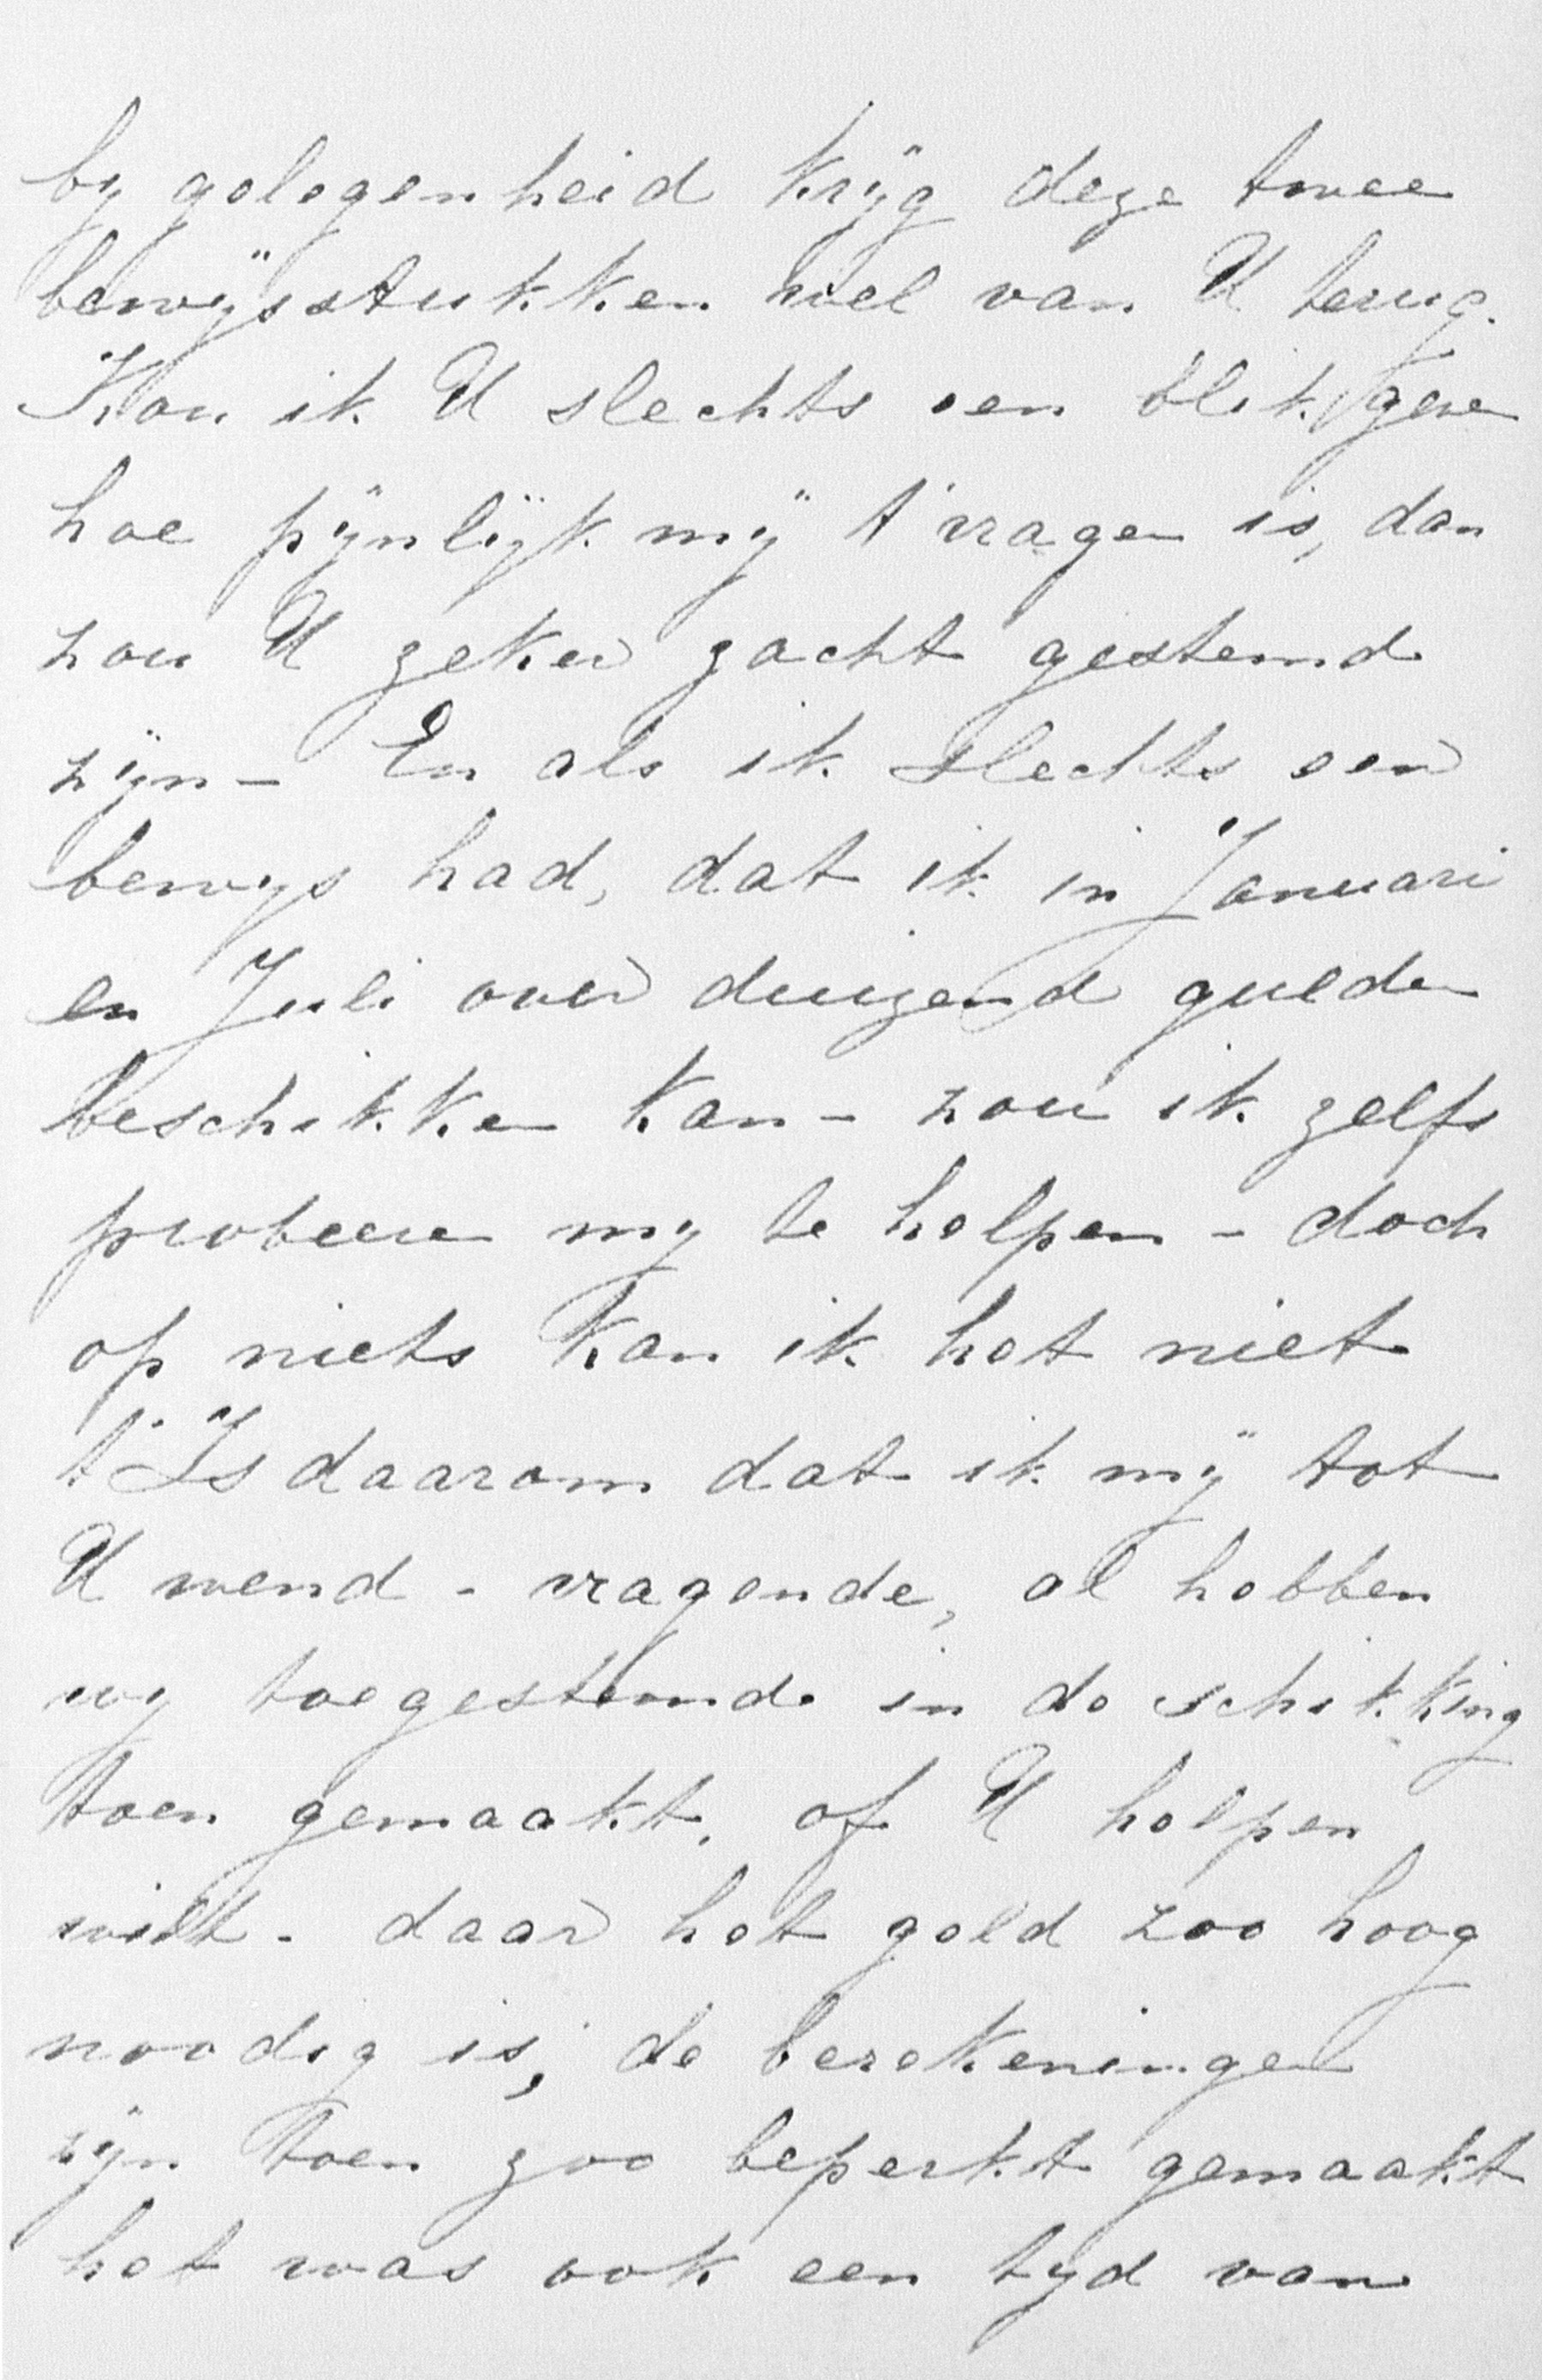 by gelegenheid krijg deze twee
bewijsstukken wel van U terug.
Kon ik U slechts een blik geven
hoe pijnlijk mij t'vragen is, dan
zou U zeker zacht gestemd
zijn - En als ik slechts een
bewijs had, dat ik in Januari
en Juli over duizend gulden
beschikken kan - zou ik zelfs
probeeren my te helpen - doch
op niets kan ik het niet
t'Is daarom dat ik mij tot
U wend - vragende, al hebben
wy toegestemd in de schikking
toen gemaakt, of U helpen
wilt - daar het geld zoo hoog
noodig is, de berekeningen
zijn toen zoo beperkt gemaakt
het was ook een tyd van